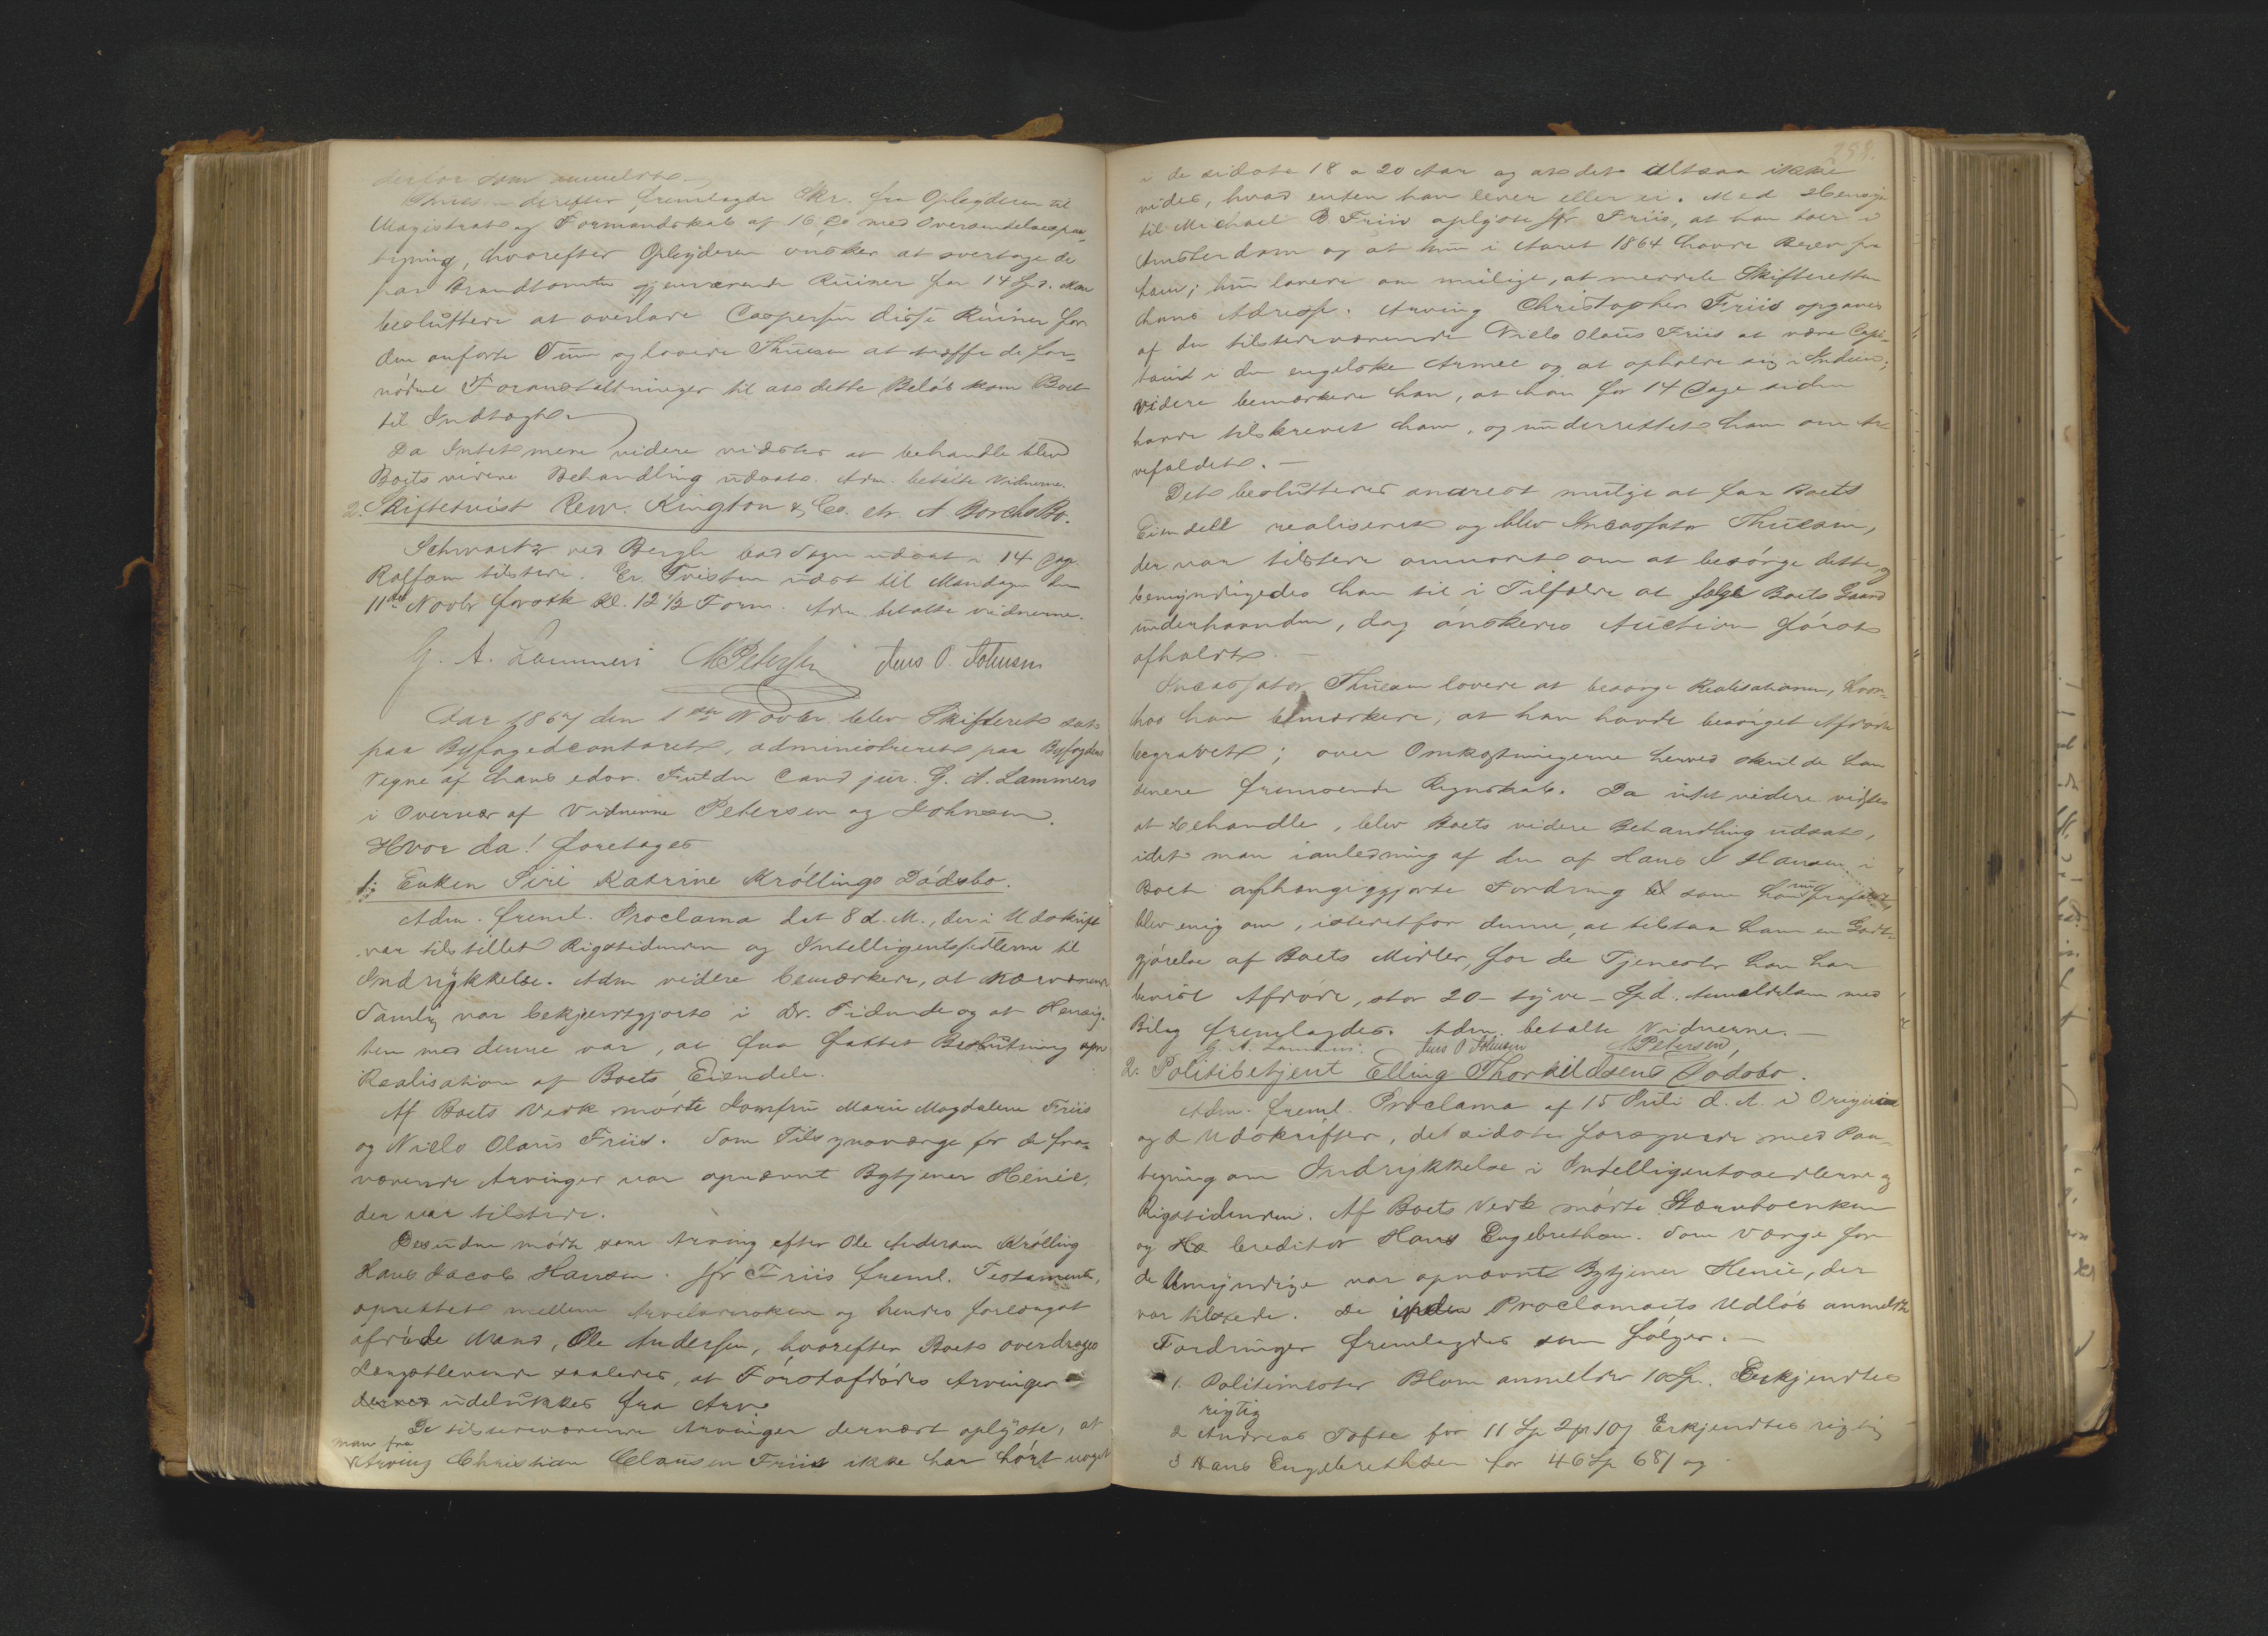 derfor som anmeldte.
Thuesen derefter fremlagde Skr. fra Oplyderen til
Magistrat og Formandskab af 16 med Oversendelsespaa-
tegning, hvorefter Oplyderen ønsker at overtage de
paa Brandtomten gjenværende Ruiner for 14 Spd. Man
besluttede at overlade Caspersen disse Ruiner for
den anførte Sum og lovede Thuesen at træffe de for-
nødne Foranstaltninger til at dette Beløb kom Boet
til Indtægt.
Da Intet mere videre vidstes at behandle blev
Boets videre Behandling udsat. Adm. betalte Vidnerne.
2. Skiftetvist Rew. Kington & Co. ctr. A. Borchs Bo.
Schwartz ved Bergh bad Sagen udsat i 14 Dage
Rolfsen tilstede. Er. Tvisten udsat til Mandagen den
11te Novbr førstk Kl. 12 1/2 Form. Adm. betalte vidnerne.
G. A. Lammers MPetersen Jens O. Johnsen
Aar 1867 den 1ste Novbr. blev Skifteret sat
paa Byfogedcontoret, administreret paa Byfogdens
Vegne af hans edsv. Fuldm Cand jur. G. A. Lammers
i Overvær af Vidnerne Petersen og Johnsen.
Hvor da! foretages
1; Enken Siri Katrine Króllings Dódsbo.
Adm. freml. Proclama dat 8 d. M., der i Udskrift
var tilstillet Rigstidenden og Intelligentssedlerne til
Indrykkelse. Adm videre bemærkede, at nærværende
Samling var bekjendtgjort i Dr. Tidende og at Hensig-
ten med denne var, at faa fattet Beslutning om
Realisation af Boets Eiendele.
Af Boets Vedk mødte Jomfru Marie Magdalene Friis
og Niels Olaus Friis. Som Tilsynsværge for de fra-
værende Arvinger var opnævnt Bytjener Henie,
der var tilstede.
Desuden mødte som Arving efter Ole Andersen Królling
Hans Jacob Hansen. Jfr Friis freml. Testamente,
oprettet mellem Arveladersken og hendes forlængst
afdøde Mand, Ole Andersen, hvorefter Boet overdrages
Længstlevende saaledes, at Førstafdødes Arvinger
derved udelukkes fra Arv.
De tilstedeværende Arvinger dernæst oplyste, at
man fra
Arving Christian Clausen Friis ikke har hørt noget
299.
i de sidste 18 a 20 Aar og at det altsaa ikke
vides, hvad enten han lever eller ei. Med Hensyn
til Michael B Friis oplyste Jfr Friis, at han boer i
Amsterdam og at hun i Aaret 1864 havde Brev fra
ham; hun lovede om muligt, at meddele Skifteretten
hans Adresse. Arving Christopher Friis opgaves
af den tilstedeværende Niels Olaus Friis at være Capi-
tain i den engelske Armee og at opholde sig i Indien;
videre bemærkede han, at han for 14 Dage siden
havde tilskrevet ham, og underrettet ham om Ar-
vefaldet.
Det besluttedes snarest muligt at faa Boets
Eiendele realiseret og blev Incassator Thuesen,
der var tilstede anmodet om at besørge dette, og
bemyndigedes han til i Tilfælde at sælge Boets Gaard
underhaanden, dog ønskedes Auction først
afholdt.
Incassator Thuesen lovede at besørge Realisationen, hvor-
hos han bemærkede, at han havde besørget Afdøde
begravet; over Omkostningerne herved skulde han
senere fremsende Regnskab. Da intet videre vidstes
at behandle, blev Boets videre Behandling udsat,
idet man ianledning af den af Hans J Hansen i
Boet anhængiggjorte Fordring som han nu frafaldt,
blev enig om, istedetfor denne, at tilstaa ham en Godt-
gjørelse af Boets Midler, for de Tjenester han har
beviist Afdøde, stor 20 - tyve - Spd. Anmeldelsen med
Bilag fremlagdes. Adm. betalte Vidnerne.
G. A. Lammers. Jens O Johnsen MPetersen,
2. Politibetjent Elling Thorkildsens Dødsbo.
Adm. freml. Proclama af 15 Juli d. A. i Original
og 2 Udskrifter, det sidste forsynede med Paa-
tegning om Indrykkelse i Intelligentssedlerne og
Rigstidenden. Af Boets Vedk mødte Stervboenken
og Creditor Hans Engebrethsen. Som Værge for
de Umyndige var opnævnt Bytjener Henie, der
var tilstede. De inden Proclamaets Udløb anmeldte
Fordringer fremlagdes som følger.
1. Politimester Blom anmelder 10 Sp. Erkjendtes
rigtig
2 Andreas Tofte for 11 Sp 2 10 Erkjendtes rigtig
3 Hans Engebrethsen for 46 Sp 68 og